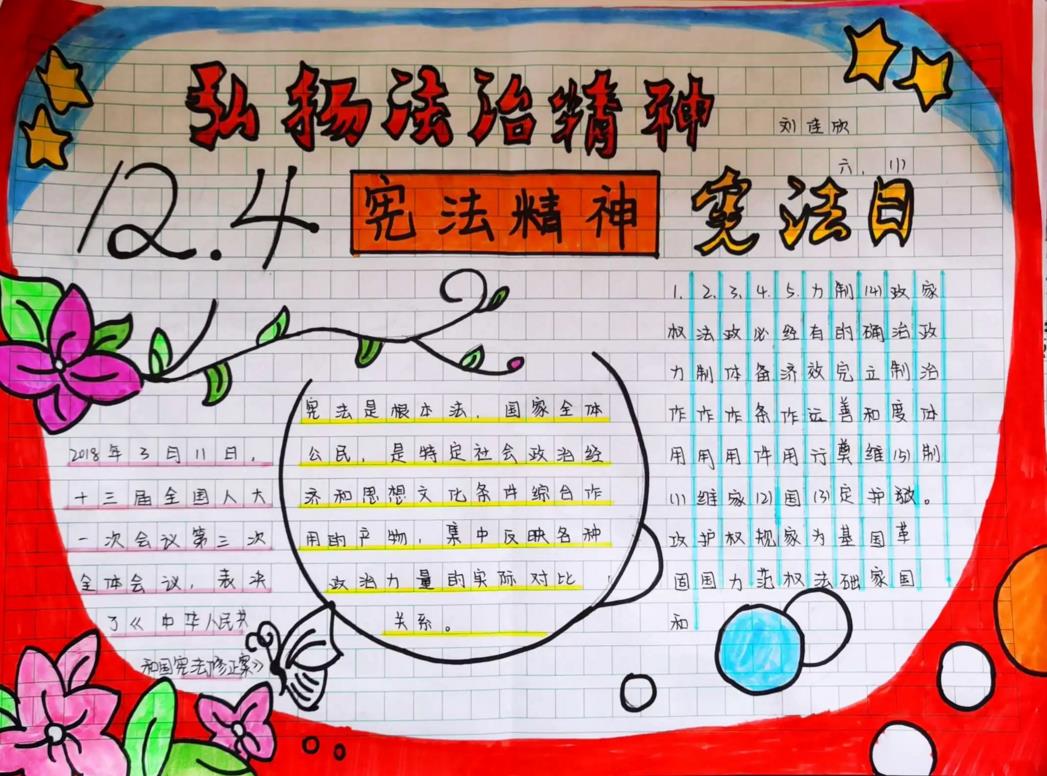 弘扬法治精神
刘佳欣
六.(1)
12.4
宪法精神
宪法日
2018年3月11日，
十三届全国人大
一次会议第三次
全体会议，表决
了《中华人民共
和国宪法修正案》
宪法是根本法，国家全体
公民，是特定社会政治经
济和思想文化条件综合作
用的产物，集中反映各种
政治力量的实际对比
关系。
1.权力作用(1)巩固和
2.法制作用维护国
3.政体作用家权力
4.必备条件(2)规范
5.经济作用国家权
力有效运行(3)为法
制的完善奠定基础
(4)确立和维护国家
政治制度(5)革国
家政治体制。